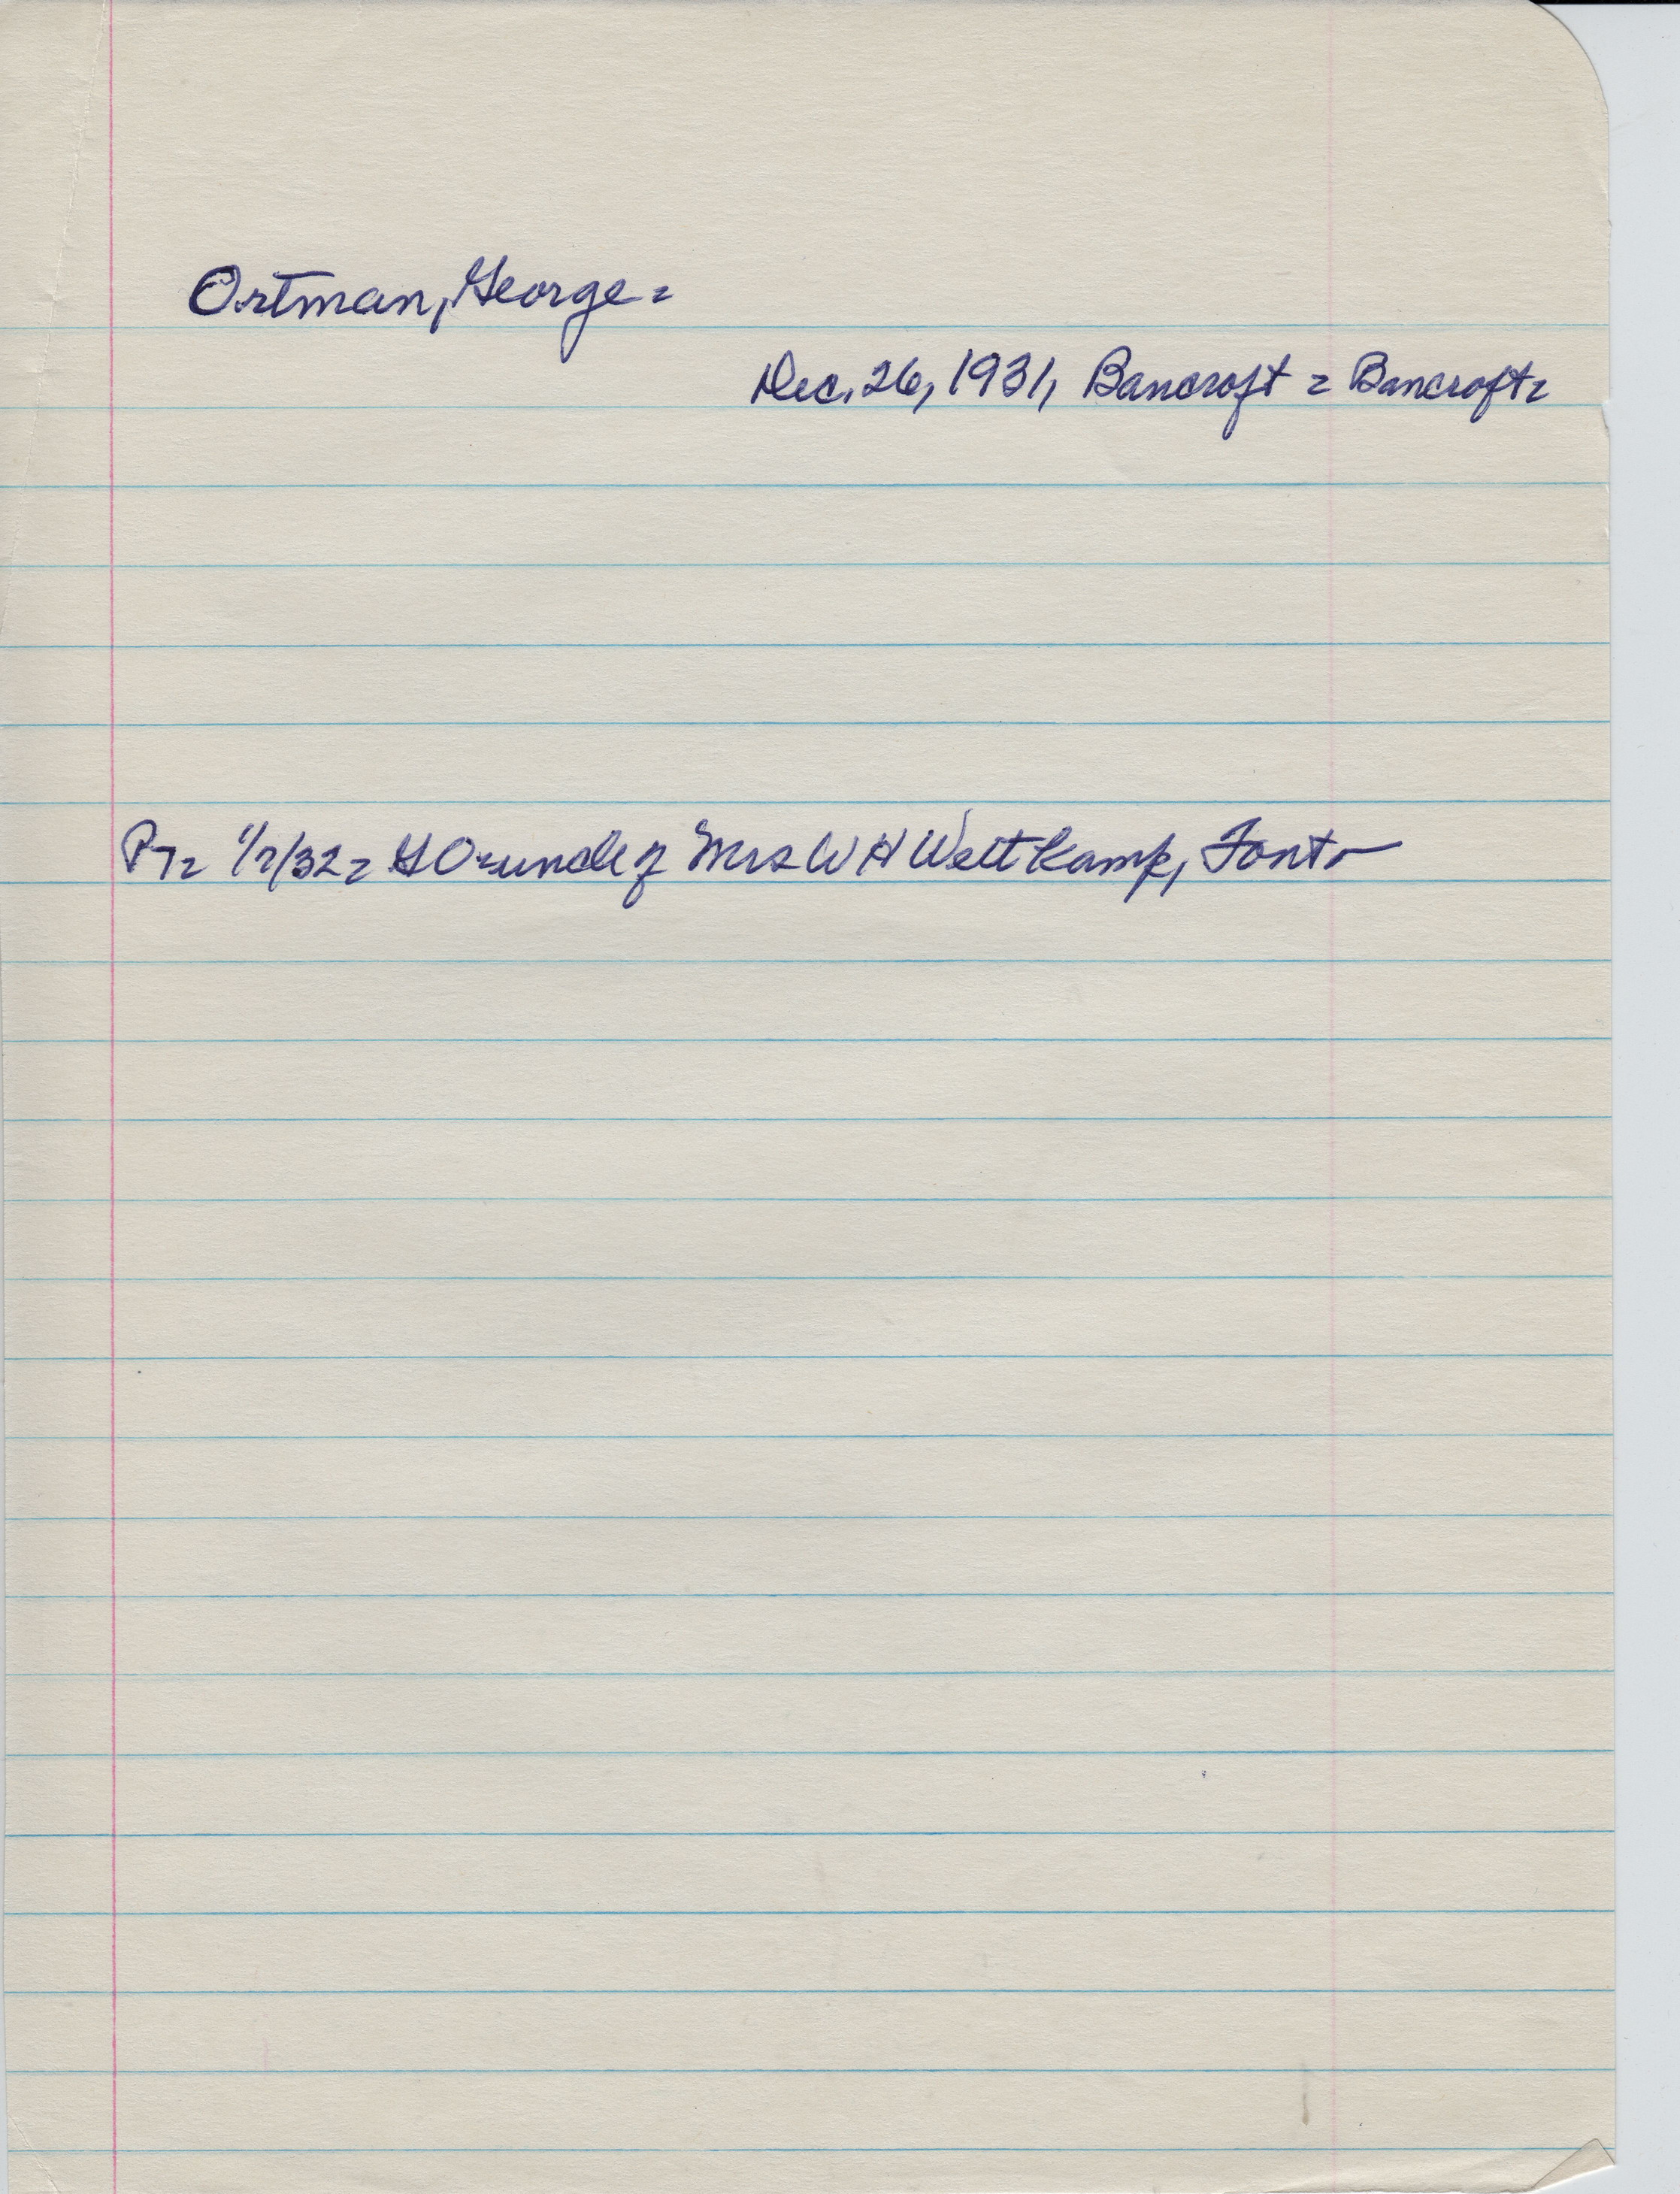 Ortman, George =
Dec. 26, 1931, Bancroft = Bancroft =
PT = 1/7/32 = GO = uncle of Mrs W H Weltkamp, Fonto